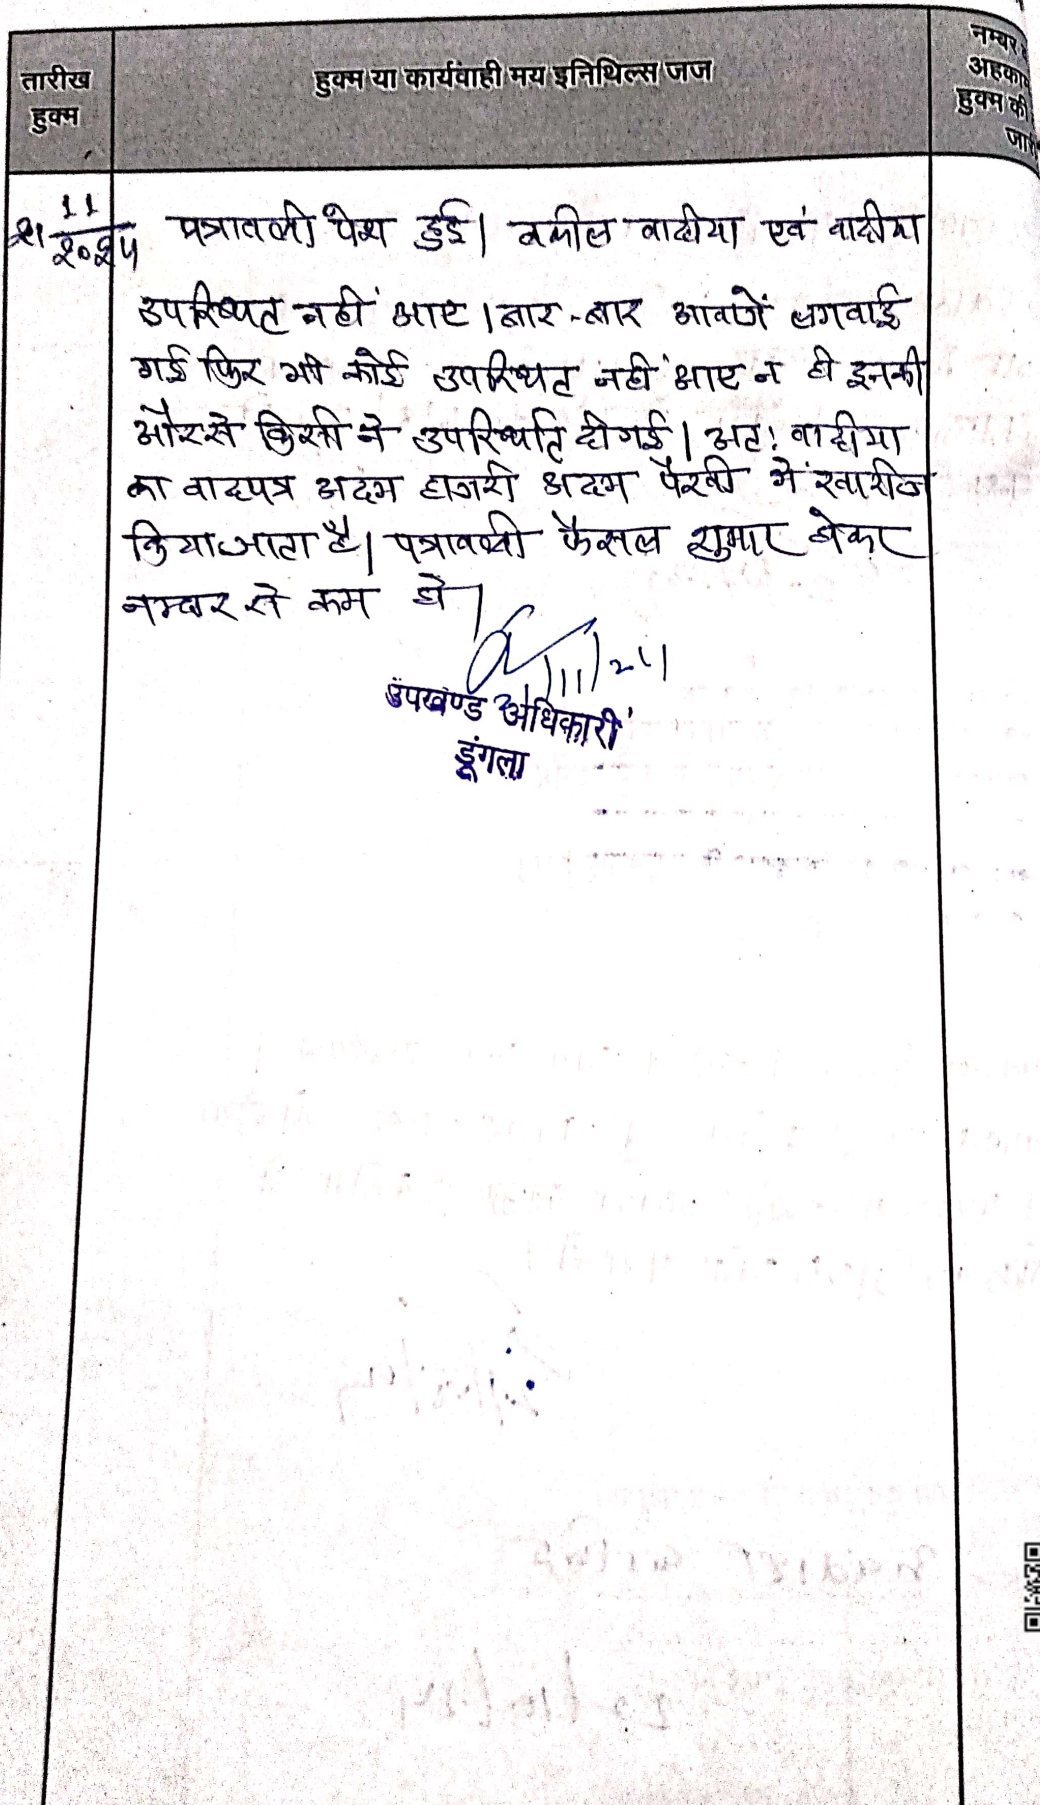 तारीख
हुक्म
हुक्म या कार्यवाही मय इनिथिल्स जज
नम्बर
अहकाम
हुक्म की
जारी
21/11/2024 पत्रावली पेश हुई। वकील वादीया एवं वादीया
उपस्थित नहीं आए। बार-बार आवाजें लगवाई
गई फिर भी कोई उपस्थित नहीं आए न ही इनकी
और से किसी ने उपस्थिति दी गई। अतः वादीया
का वादपत्र अदम हाजरी अदम पैरवी में खारीज
किया जाता है। पत्रावली फैसल शुमार होकर
नम्बर से कम हो।
उपखण्ड अधिकारी
डूंगला